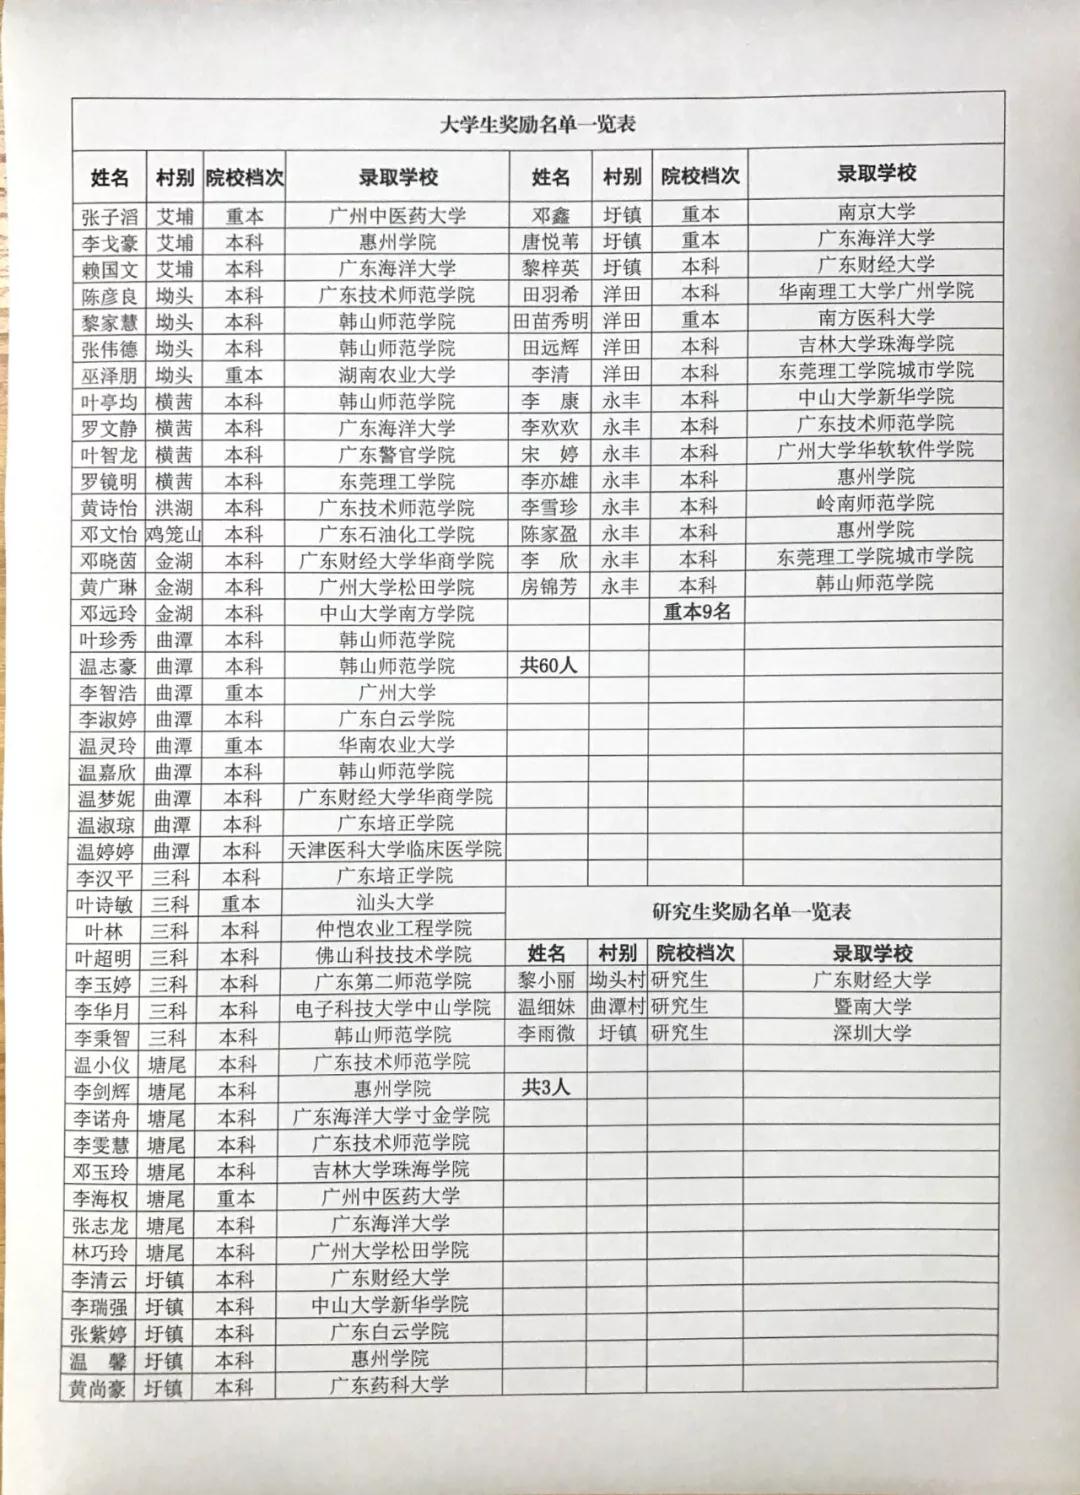 大学生奖励名单一览表
姓名 村别 院校档次 录取学校 姓名 村别 院校档次 录取学校
张子滔 艾埔 重本 广州中医药大学 邓鑫 圩镇 重本 南京大学
李戈豪 艾埔 本科 惠州学院 唐悦苇 圩镇 重本 广东海洋大学
赖国文 艾埔 本科 广东海洋大学 黎梓英 圩镇 本科 广东财经大学
陈彦良 坳头 本科 广东技术师范学院 田羽希 洋田 本科 华南理工大学广州学院
黎家慧 坳头 本科 韩山师范学院 田苗秀明 洋田 重本 南方医科大学
张伟德 坳头 本科 韩山师范学院 田远辉 洋田 本科 吉林大学珠海学院
巫泽朋 坳头 重本 湖南农业大学 李清 洋田 本科 东莞理工学院城市学院
叶亭均 横茜 本科 韩山师范学院 李 康 永丰 本科 中山大学新华学院
罗文静 横茜 本科 广东海洋大学 李欢欢 永丰 本科 广东技术师范学院
叶智龙 横茜 本科 广东警官学院 宋 婷 永丰 本科 广州大学华软软件学院
罗镜明 横茜 本科 东莞理工学院 李亦雄 永丰 本科 惠州学院
黄诗怡 洪湖 本科 广东技术师范学院 李雪珍 永丰 本科 岭南师范学院
邓文怡 鸡笼山 本科 广东石油化工学院 陈家盈 永丰 本科 惠州学院
邓晓茵 金湖 本科 广东财经大学华商学院 李 欣 永丰 本科 东莞理工学院城市学院
黄广琳 金湖 本科 广州大学松田学院 房锦芳 永丰 本科 韩山师范学院
邓远玲 金湖 本科 中山大学南方学院 重本9名
叶珍秀 曲潭 本科 韩山师范学院
温志豪 曲潭 本科 韩山师范学院 共60人
李智浩 曲潭 重本 广州大学
李淑婷 曲潭 本科 广东白云学院
温灵玲 曲潭 重本 华南农业大学
温嘉欣 曲潭 本科 韩山师范学院
温梦妮 曲潭 本科 广东财经大学华商学院
温淑琼 曲潭 本科 广东培正学院
温婷婷 曲潭 本科 天津医科大学临床医学院
李汉平 三科 本科 广东培正学院
叶诗敏 三科 重本 汕头大学
叶林 三科 本科 仲恺农业工程学院
叶超明 三科 本科 佛山科技技术学院
李玉婷 三科 本科 广东第二师范学院
李华月 三科 本科 电子科技大学中山学院
李秉智 三科 本科 韩山师范学院
温小仪 塘尾 本科 广东技术师范学院
李剑辉 塘尾 本科 惠州学院
李诺舟 塘尾 本科 广东海洋大学寸金学院
李雯慧 塘尾 本科 广东技术师范学院
邓玉玲 塘尾 本科 吉林大学珠海学院
李海权 塘尾 重本 广州中医药大学
张志龙 塘尾 本科 广东海洋大学
林巧玲 塘尾 本科 广州大学松田学院
李清云 圩镇 本科 广东财经大学
李瑞强 圩镇 本科 中山大学新华学院
张紫婷 圩镇 本科 广东白云学院
温 馨 圩镇 本科 惠州学院
黄尚豪 圩镇 本科 广东药科大学
研究生奖励名单一览表
姓名 村别 院校档次 录取学校
黎小丽 坳头村 研究生 广东财经大学
温细妹 曲潭村 研究生 暨南大学
李雨微 圩镇 研究生 深圳大学
共3人